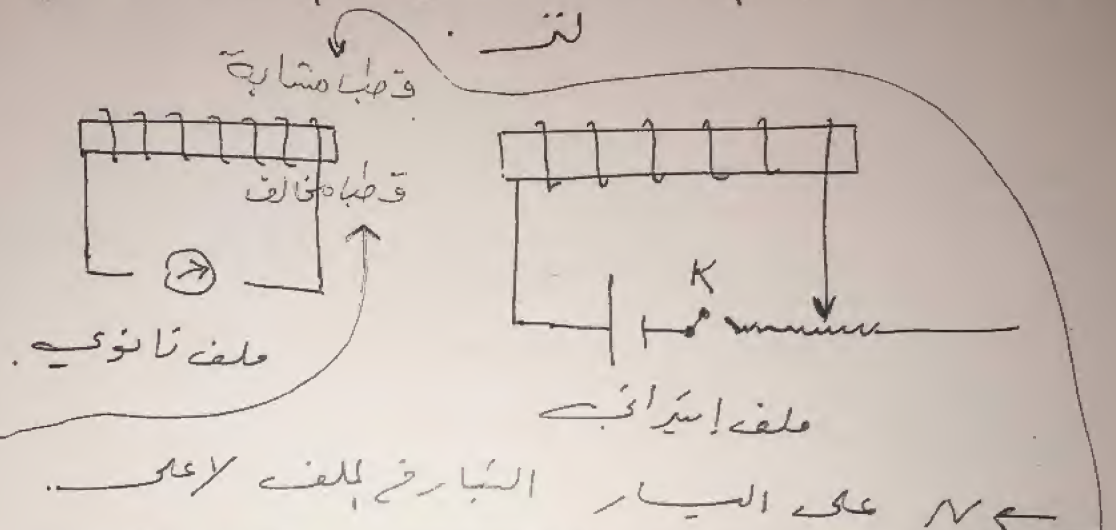 لنز .
قطب مشابة
قطباه مخالف
K
ملف ثانوي .
ملف إبتدائي
← N على اليسار التيار في الملف لاعلى .